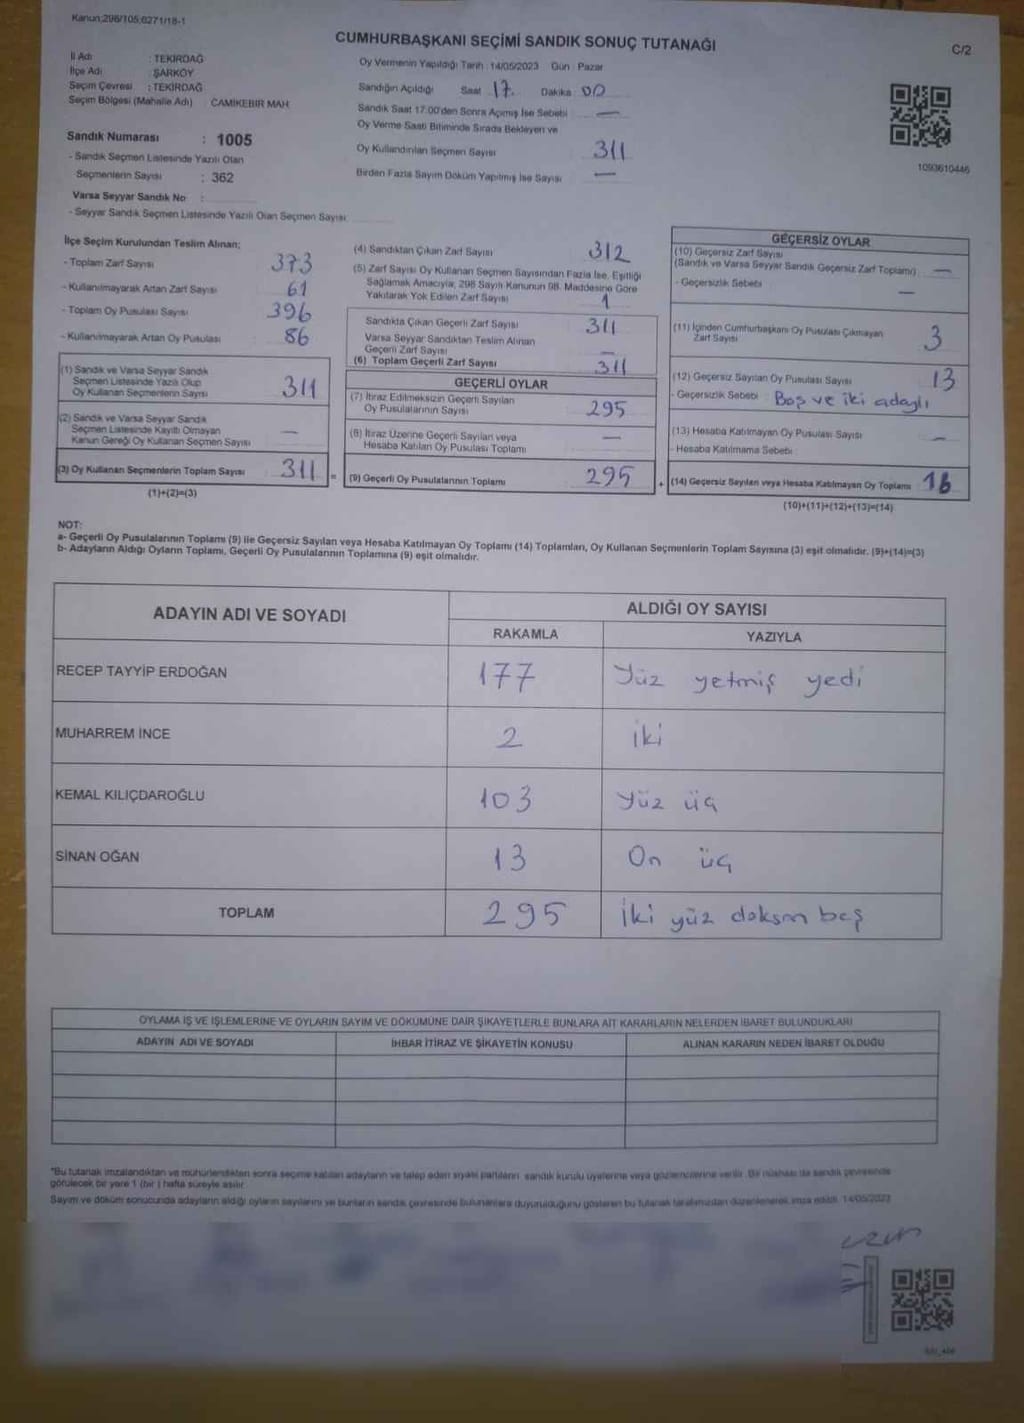 Kanun;298/105,6271/18-1
CUMHURBAŞKANI SEÇİMİ SANDIK SONUÇ TUTANAĞI
C/2
İl Adı : TEKİRDAĞ
İlçe Adı : ŞARKÖY
Seçim Çevresi : TEKİRDAĞ
Seçim Bölgesi (Mahalle Adı) : CAMİKEBİR MAH.
Sandık Numarası : 1005
- Sandık Seçmen Listesinde Yazılı Olan
Seçmenlerin Sayısı : 362
Varsa Seyyar Sandık No :
- Seyyar Sandık Seçmen Listesinde Yazılı Olan Seçmen Sayısı:
Oy Vermenin Yapıldığı Tarih : 14/05/2023 Gün : Pazar
Sandığın Açıldığı Saat 17. Dakika 00
Sandık Saat 17:00'den Sonra Açmış İse Sebebi : —
Oy Verme Saati Bitiminde Sırada Bekleyen ve
Oy Kullandırılan Seçmen Sayısı 311
Birden Fazla Sayım Döküm Yapılmış İse Sayısı —
1093610446
İlçe Seçim Kurulundan Teslim Alınan;
- Toplam Zarf Sayısı 373
- Kullanılmayarak Artan Zarf Sayısı 61
- Toplam Oy Pusulası Sayısı 396
- Kullanılmayarak Artan Oy Pusulası 86
(1) Sandık ve Varsa Seyyar Sandık
Seçmen Listesinde Yazılı Olup
Oy Kullanan Seçmenlerin Sayısı 311
(2) Sandık ve Varsa Seyyar Sandık
Seçmen Listesinde Kayıtlı Olmayan
Kanun Gereği Oy Kullanan Seçmen Sayısı —
(3) Oy Kullanan Seçmenlerin Toplam Sayısı 311 =
(1)+(2)=(3)
(4) Sandıktan Çıkan Zarf Sayısı 312
(5) Zarf Sayısı Oy Kullanan Seçmen Sayısından Fazla İse, Eşitliği
Sağlamak Amacıyla, 298 Sayılı Kanunun 98. Maddesine Göre
Yakılarak Yok Edilen Zarf Sayısı 1
Sandıkta Çıkan Geçerli Zarf Sayısı 311
Varsa Seyyar Sandıktan Teslim Alınan
Geçerli Zarf Sayısı —
(6) Toplam Geçerli Zarf Sayısı 311
GEÇERLİ OYLAR
(7) İtiraz Edilmeksizin Geçerli Sayılan
Oy Pusulalarının Sayısı 295
(8) İtiraz Üzerine Geçerli Sayılan veya
Hesaba Katılan Oy Pusulası Toplamı —
(9) Geçerli Oy Pusulalarının Toplamı 295 +
GEÇERSİZ OYLAR
(10) Geçersiz Zarf Sayısı
(Sandık ve Varsa Seyyar Sandık Geçersiz Zarf Toplamı) —
- Geçersizlik Sebebi —
(11) İçinden Cumhurbaşkanı Oy Pusulası Çıkmayan
Zarf Sayısı 3
(12) Geçersiz Sayılan Oy Pusulası Sayısı 13
- Geçersizlik Sebebi : Boş ve iki adaylı
(13) Hesaba Katılmayan Oy Pusulası Sayısı —
- Hesaba Katılmama Sebebi
(14) Geçersiz Sayılan veya Hesaba Katılmayan Oy Toplamı 16
(10)+(11)+(12)+(13)=(14)
NOT:
a- Geçerli Oy Pusulalarının Toplamı (9) ile Geçersiz Sayılan veya Hesaba Katılmayan Oy Toplamı (14) Toplamları, Oy Kullanan Seçmenlerin Toplam Sayısına (3) eşit olmalıdır. (9)+(14)=(3)
b- Adayların Aldığı Oyların Toplamı, Geçerli Oy Pusulalarının Toplamına (9) eşit olmalıdır.
ADAYIN ADI VE SOYADI
ALDIĞI OY SAYISI
RAKAMLA YAZIYLA
RECEP TAYYİP ERDOĞAN 177 Yüz yetmiş yedi
MUHARREM İNCE 2 iki
KEMAL KILIÇDAROĞLU 103 Yüz üç
SİNAN OĞAN 13 On üç
TOPLAM 295 İki yüz doksan beş
OYLAMA İŞ VE İŞLEMLERİNE VE OYLARIN SAYIM VE DÖKÜMÜNE DAİR ŞİKAYETLERLE BUNLARA AİT KARARLARIN NELERDEN İBARET BULUNDUKLARI
ADAYIN ADI VE SOYADI İHBAR İTİRAZ VE ŞİKAYETİN KONUSU ALINAN KARARIN NEDEN İBARET OLDUĞU
*Bu tutanak imzalandıktan ve mühürlendikten sonra seçime katılan adayların ve talep eden siyasi partilerin sandık kurulu üyelerine veya gözlemcilerine verilir. Bir nüshası da sandık çevresinde
görülecek bir yere 1 (bir ) hafta süreyle asılır.
Sayım ve döküm sonucunda adayların aldığı oyların sayılarını ve bunların sandık çevresinde bulunanlara duyurulduğunu gösteren bu tutanak tarafımızdan düzenlenerek imza edildi. 14/05/2023